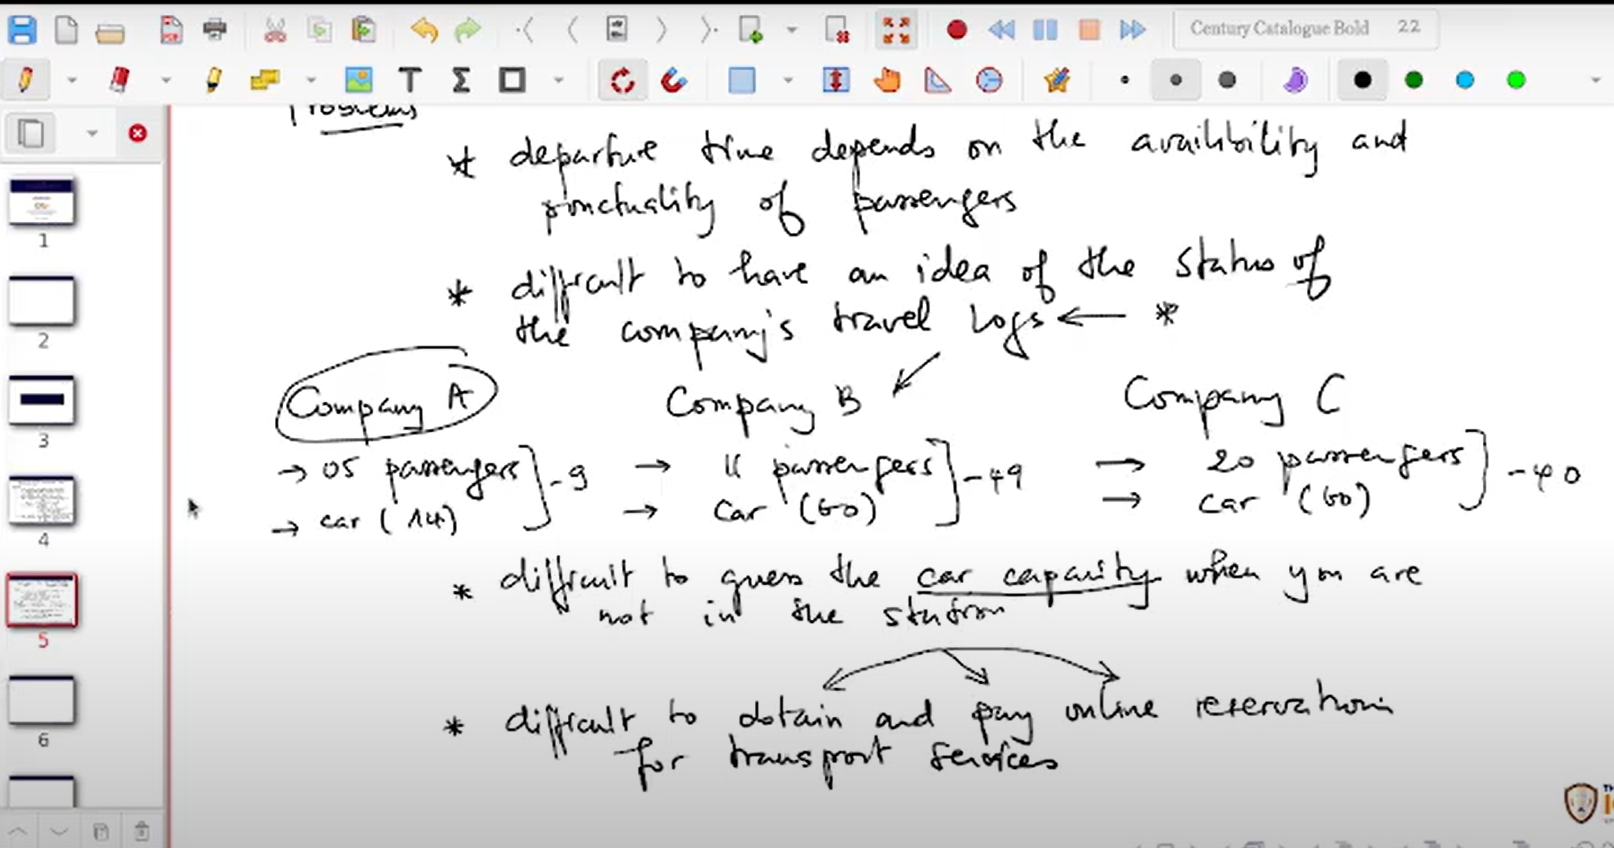 Century Catalogue Bold 22
Problems
* departure time depends on the availibility and
punctuality of passengers
* difficult to have an idea of the status of
the company's travel logs ← *
Company A Company B Company C
→ 05 passengers ] -9 → 11 passengers ] -49 → 20 passengers ] -40
→ car (14) → car (60) → car (60)
* difficult to guess the car capacity when you are
not in the station
* difficult to obtain and pay online reservations
for transport services
1
2
3
4
5
6